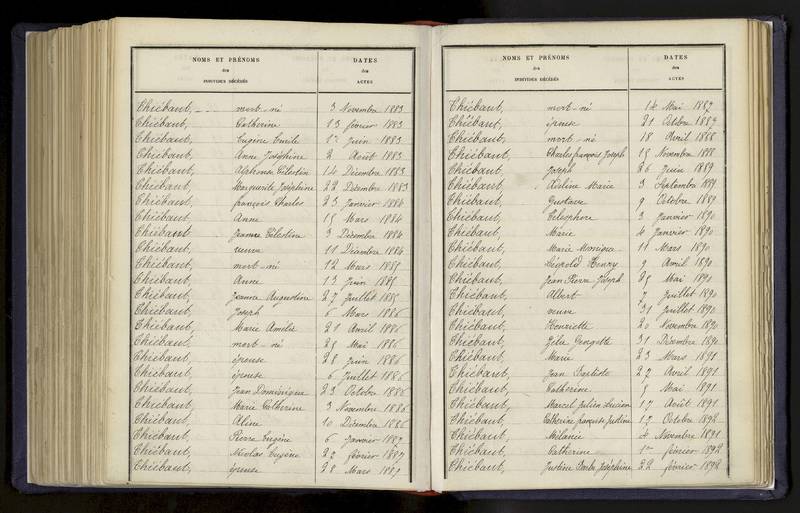 NOMS ET PRÉNOMS
des
INDIVIDUS DÉCÉDÉS
DATES
des
ACTES
Thiébaut, mort-né 3 Novembre 1883
Thiébaut, Catherine 13 février 1883
Thiébaut, Eugène Emile Juin 1883
Thiébaut, Anne Joséphine 2 Août 1883
Thiébaut, Alphonse Célestin 14 Décembre 1883
Thiébaut, Marguerite Joséphine 22 Décembre 1883
Thiébaut, françois Charles 23 Janvier 1884
Thiébaut, Anne 15 Mars 1884
Thiébaut, Jeanne Célestine 3 Décembre 1884
Thiébaut, veuve 11 Décembre 1884
Thiébaut, mort-né 12 Mars 1885
Thiébaut, Anne 13 Juin 1885
Thiébaut, Jeanne Augustine 27 Juillet 1885
Thiébaut, Joseph 6 Mars 1886
Thiébaut, Marie Amélie 21 Avril 1886
Thiébaut, mort-né 25 Mai 1886
Thiébaut, épouse 28 Juin 1886
Thiébaut, épouse 6 Juillet 1886
Thiébaut, Jean Dominique 23 Octobre 1886
Thiébaut, Marie Catherine 3 Novembre 1886
Thiébaut, Aline 10 Décembre 1886
Thiébaut, Pierre Eugène 6 Janvier 1887
Thiébaut, Nicolas Eugène 22 février 1887
Thiébaut, épouse 28 Mars 1887
NOMS ET PRÉNOMS
des
INDIVIDUS DÉCÉDÉS
DATES
des
ACTES
Thiébaut, mort-né 14 Mai 1887
Thiébaut, épouse 21 Octobre 1887
Thiébaut, mort-né 18 Avril 1888
Thiébaut, Charles françois Joseph 15 Novembre 1888
Thiébaut, Joseph 26 Juin 1889
Thiébaut, Marie 3 Septembre 1889
Thiébaut, Gustave 9 Octobre 1889
Thiébaut, Télesphore 3 Janvier 1890
Thiébaut, Marie 4 Janvier 1890
Thiébaut, Marie Monique 11 Mars 1890
Thiébaut, Léopold Henry 9 Avril 1890
Thiébaut, Jean Pierre Joseph 25 Mai 1890
Thiébaut, Albert 7 Juillet 1890
Thiébaut, veuve 31 Juillet 1890
Thiébaut, Henriette 20 Novembre 1890
Thiébaut, Zélie Georgette 31 Décembre 1890
Thiébaut, Marie 23 Mars 1891
Thiébaut, Jean Baptiste 27 Avril 1891
Thiébaut, Catherine 5 Mai 1891
Thiébaut, Marcel Julien Lucien 17 Août 1891
Thiébaut, Catherine françoise Justine 17 Octobre
Thiébaut, Mélanie 4 Novembre 1891
Thiébaut, Catherine 1er février 1892
Thiébaut, Justine Barbe Joséphine 22 février 1892